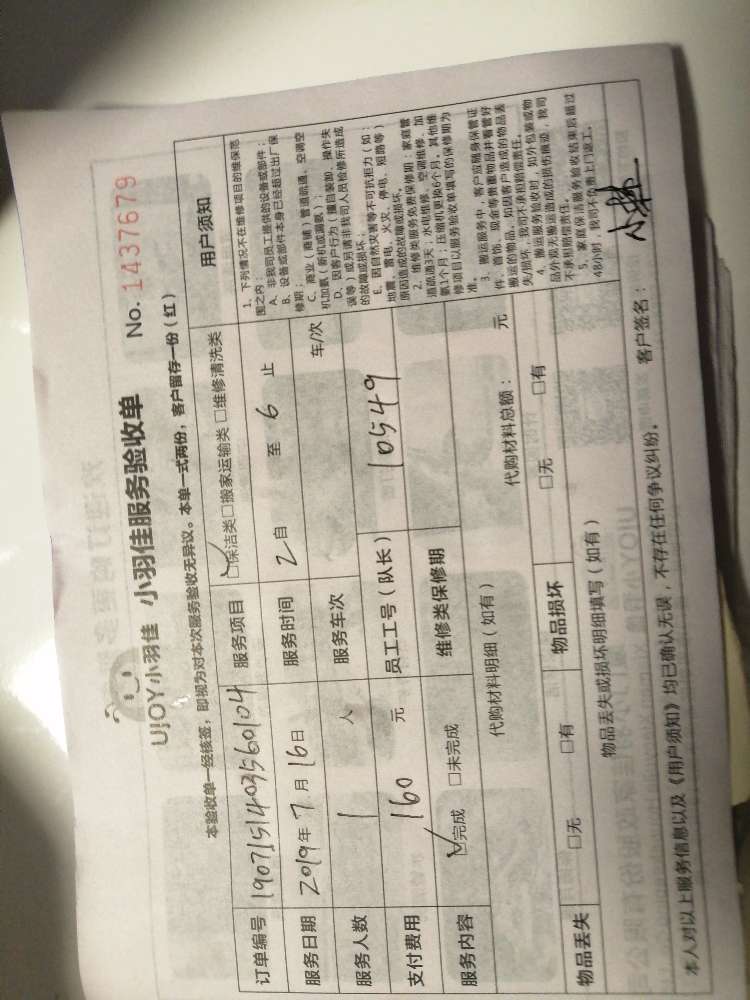 UJOY小羽佳 小羽佳服务验收单 No. 1437679
本验收单一经核签，即视为对本次服务验收无异议。本单一式两份，客户留存一份（红）
订单编号 1907151403560104 服务项目 ☑保洁类 □搬家运输类 □维修清洗类
服务日期 2019年7月16日 服务时间 2 自 至 6 止
服务人数 1 人 服务车次 车/次
支付费用 160 元 员工工号（队长） 10549
服务内容 ☑完成 □未完成 维修类保修期
代购材料明细（如有） 代购材料总额： 元
物品丢失 □无 □有 物品损坏 □无 □有
物品丢失或损坏明细填写（如有）
用户须知
1、下列情况不在维修项目的维保范
围之内：
A、非我司员工提供的设备或部件；
B、设备或部件本身已经超过出厂保
修期；
C、商业（商铺）管道疏通、空调空
机加氨（新机或漏氨）；
D、因客户行为（擅自装卸、操作失
误等）或另请非我司人员检修所造成
的故障或损坏；
E、因自然灾害等不可抗拒力（如：
地震、雷电、火灾、停电、短路等）
原因造成的故障或损坏。
2、维修类服务免费保修期：家庭管
道疏通3天；水电维修、空调维修、加
氨1个月；压缩机更换6个月。其他维
修项目以服务验收单填写的保修期为
准。
3、搬运服务中，客户应随身保管证
件、首饰、现金等贵重物品并看管好
搬运的物品。如因客户造成的物品丢
失/损坏，我司不承担赔偿责任。
4、搬运服务验收时，如外包装或物
品外观无搬运造成的损伤痕迹，我司
不承担赔偿责任。
5、家庭保洁服务验收结束后超过
48小时，我司不负责上门返工。
本人对以上服务信息以及《用户须知》均已确认无误，不存在任何争议纠纷。 客户签名：